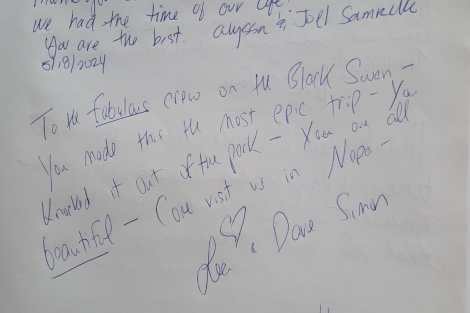 we had the time of our life.
You are the best. Alyssa & Joel
5/18/2024
To the fabulous crew on the Black Swan -
You made this the most epic trip - You
Knocked it out of the park - You are all
beautiful - Come visit us in Napa -
♡
& Dave Simon